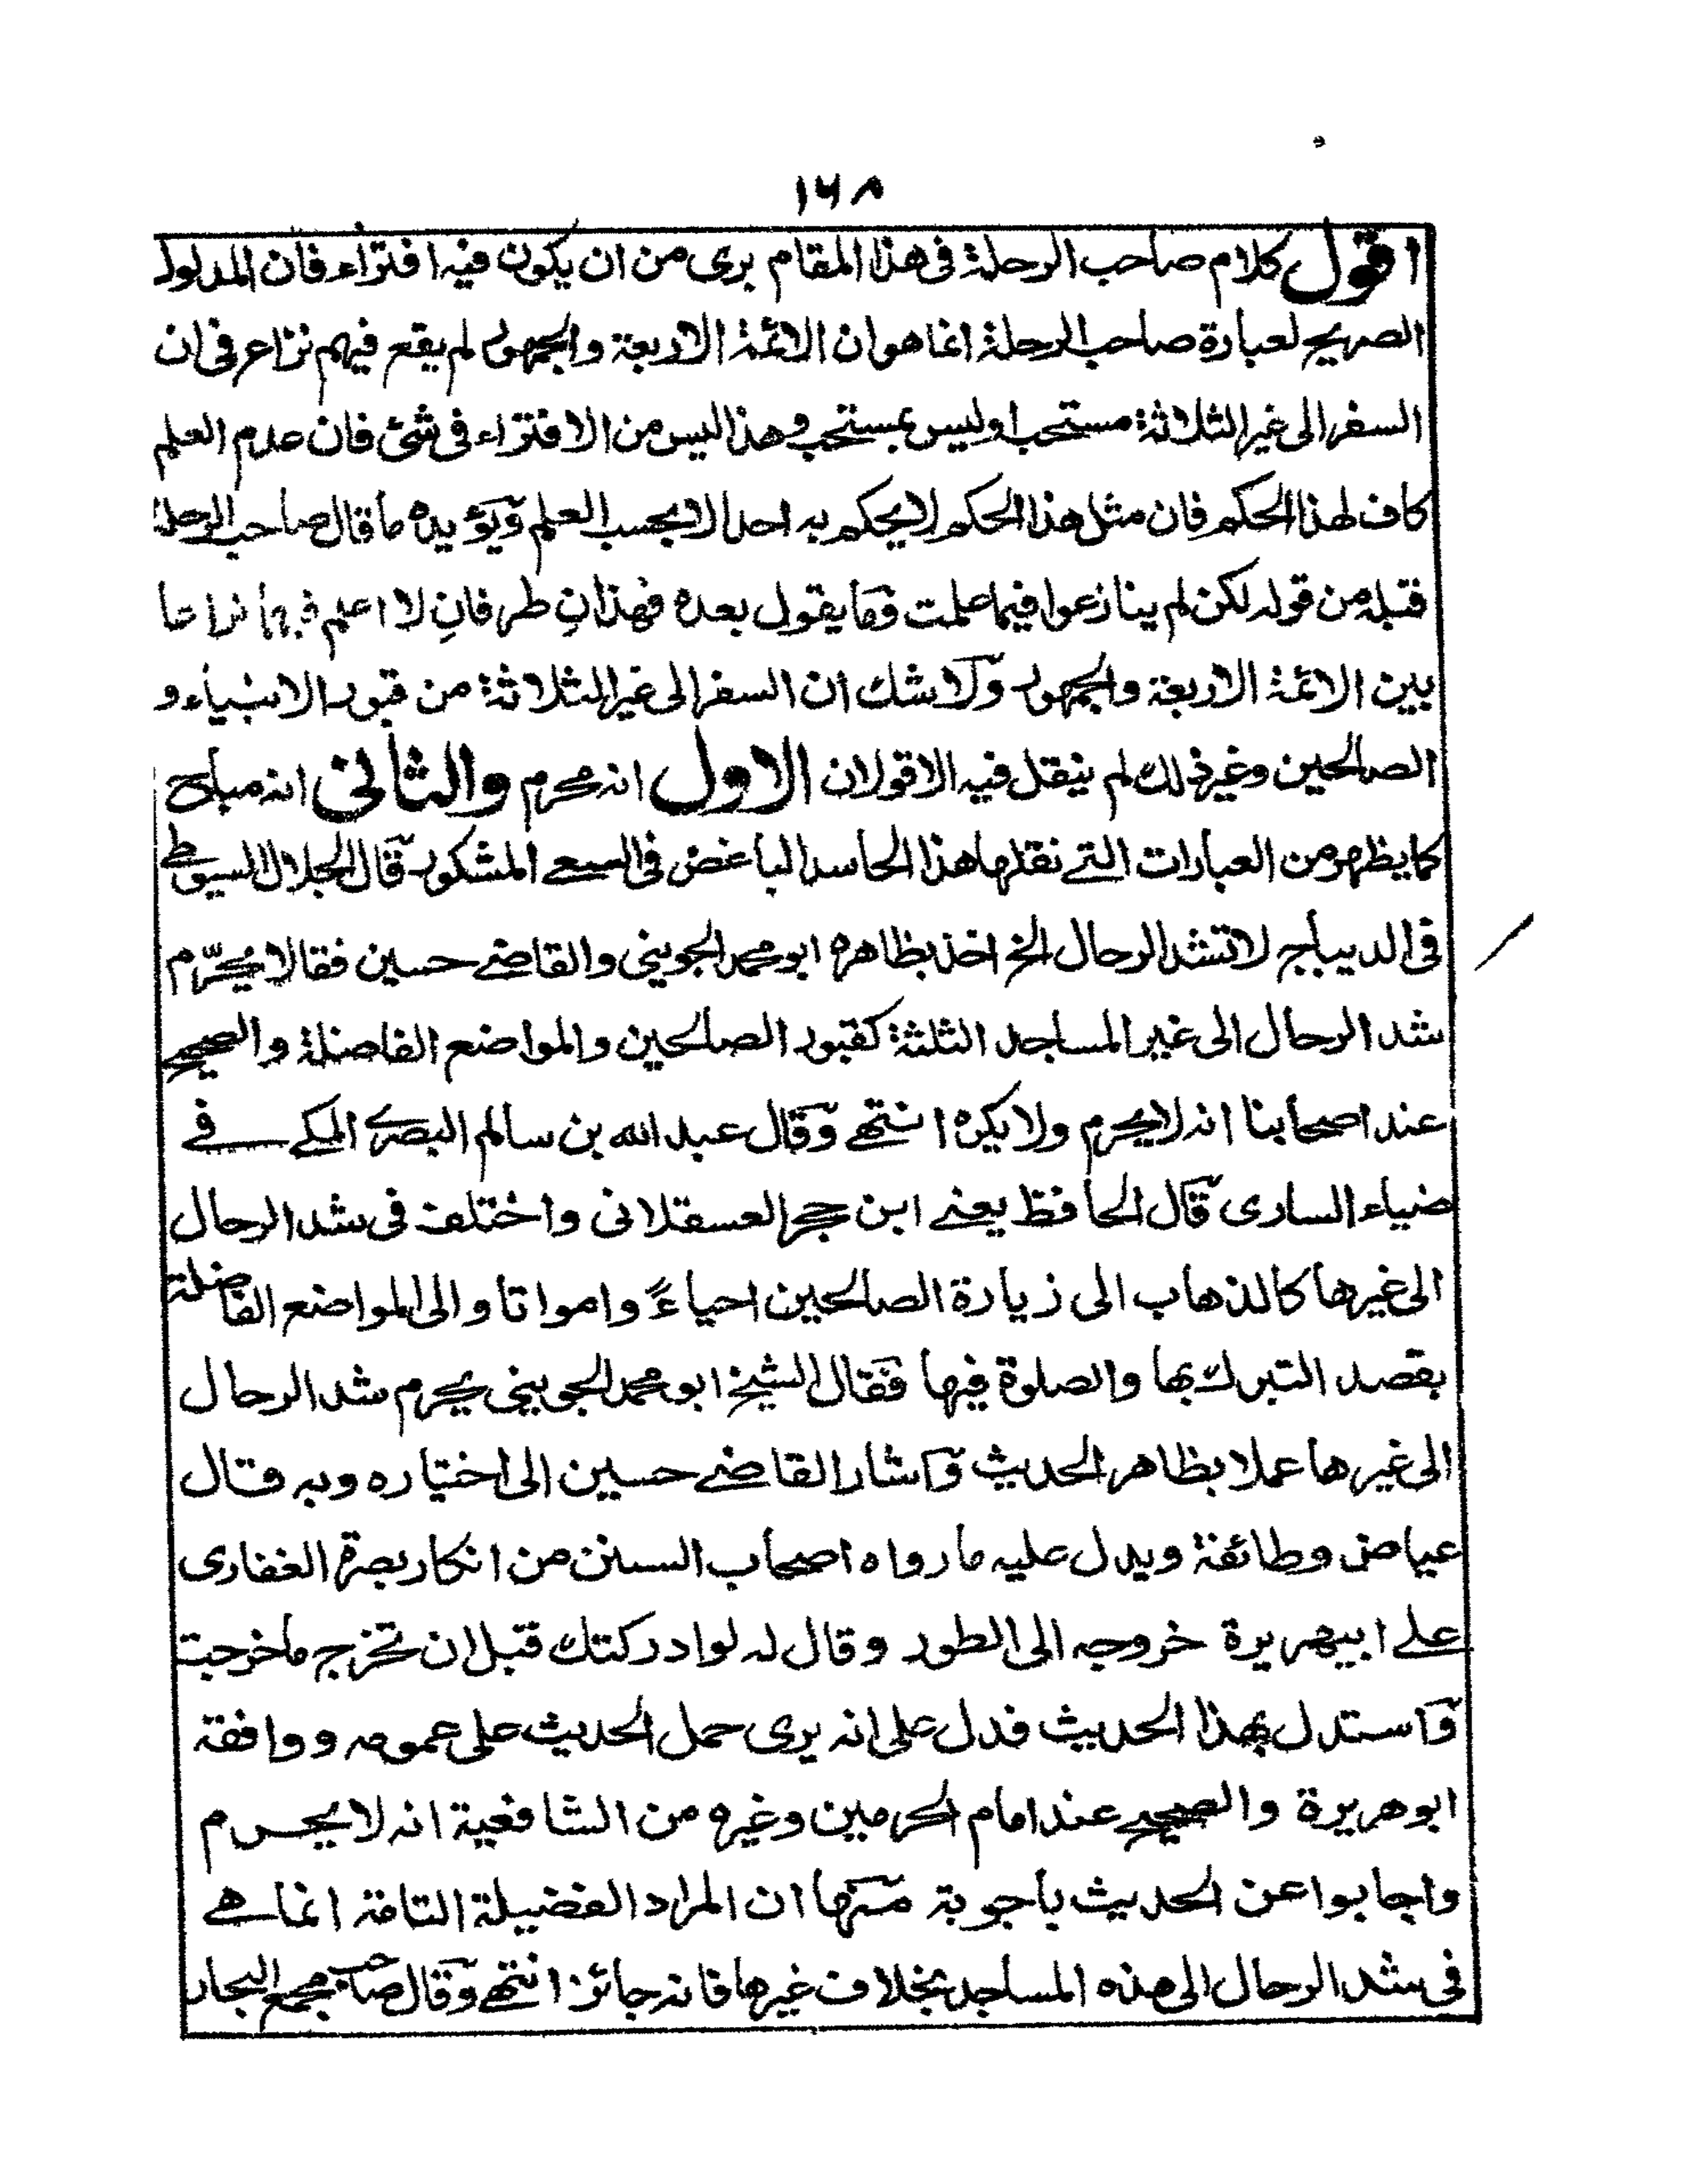 ١٦٨
اقول كلام صاحب الرحلة فى هذا المقام برى من ان يكون فيه افتراء فان المدلول
الصريح لعبارة صاحب الرحلة انما هو ان الائمة الاربعة والجمهور لم يقع فيهم نزاع فى ان
السفر الى غير الثلاثة مستحب او ليس بمستحب وهذا ليس من الافتراء فى شئ فان عدم العلم
كاف لهذا الحكم فان مثل هذا الحكم لا يحكم به احد الا بحسب العلم ويؤيده ما قال صاحب الرحلة
قبله من قوله لكن لم ينازعوا فيما علمت وما يقول بعده فهذان طرفان لا اعلم فيهما نزاعا
بين الائمة الاربعة والجمهور ولا شك ان السفر الى غير الثلاثة من قبور الانبياء و
الصالحين وغير ذلك لم ينقل فيه الا قولان الاول انه محرم والثانى انه مباح
كما يظهر من العبارات التے نقلها هذا الحاسد الباغض فى السعے المشكور قال الجلال السيوطے
فى الديباج لا تشد الرحال الخ اخذ بظاهره ابو محمد الجوينى والقاضے حسين فقالا يحرّم
شد الرحال الى غير المساجد الثلثة كقبور الصالحين والمواضع الفاضلة والصحيح
عند اصحابنا انه لا يحرم ولا يكره انتهے وقال عبد الله بن سالم البصرے المكے فے
ضياء السارى قال الحافظ يعنے ابن حجر العسقلانى واختلف فى شد الرحال
الى غيرها كالذهاب الى زيارة الصالحين احياءً وامواتا والى المواضع الفاضلة
بقصد التبرك بها والصلوة فيها فقال الشيخ ابو محمد الجوينى يحرم شد الرحال
الى غيرها عملا بظاهر الحديث واشار القاضے حسين الى اختياره وبه قال
عياض وطائفة ويدل عليه ما رواه اصحاب السنن من انكار بصرة الغفارى
علے ابيهريرة خروجه الى الطور وقال له لو ادركتك قبل ان تخرج ما خرجت
واستدل بهذا الحديث فدل على انه يرى حمل الحديث على عمومه ووافقه
ابو هريرة والصحيح عند امام الحرمين وغيره من الشافعية انه لا يحرم
واجابوا عن الحديث باجوبة منها ان المراد الفضيلة التامة انما هے
فى شد الرحال الى هذه المساجد بخلاف غيرها فانه جائز انتهے وقال صاحب مجمع البحار